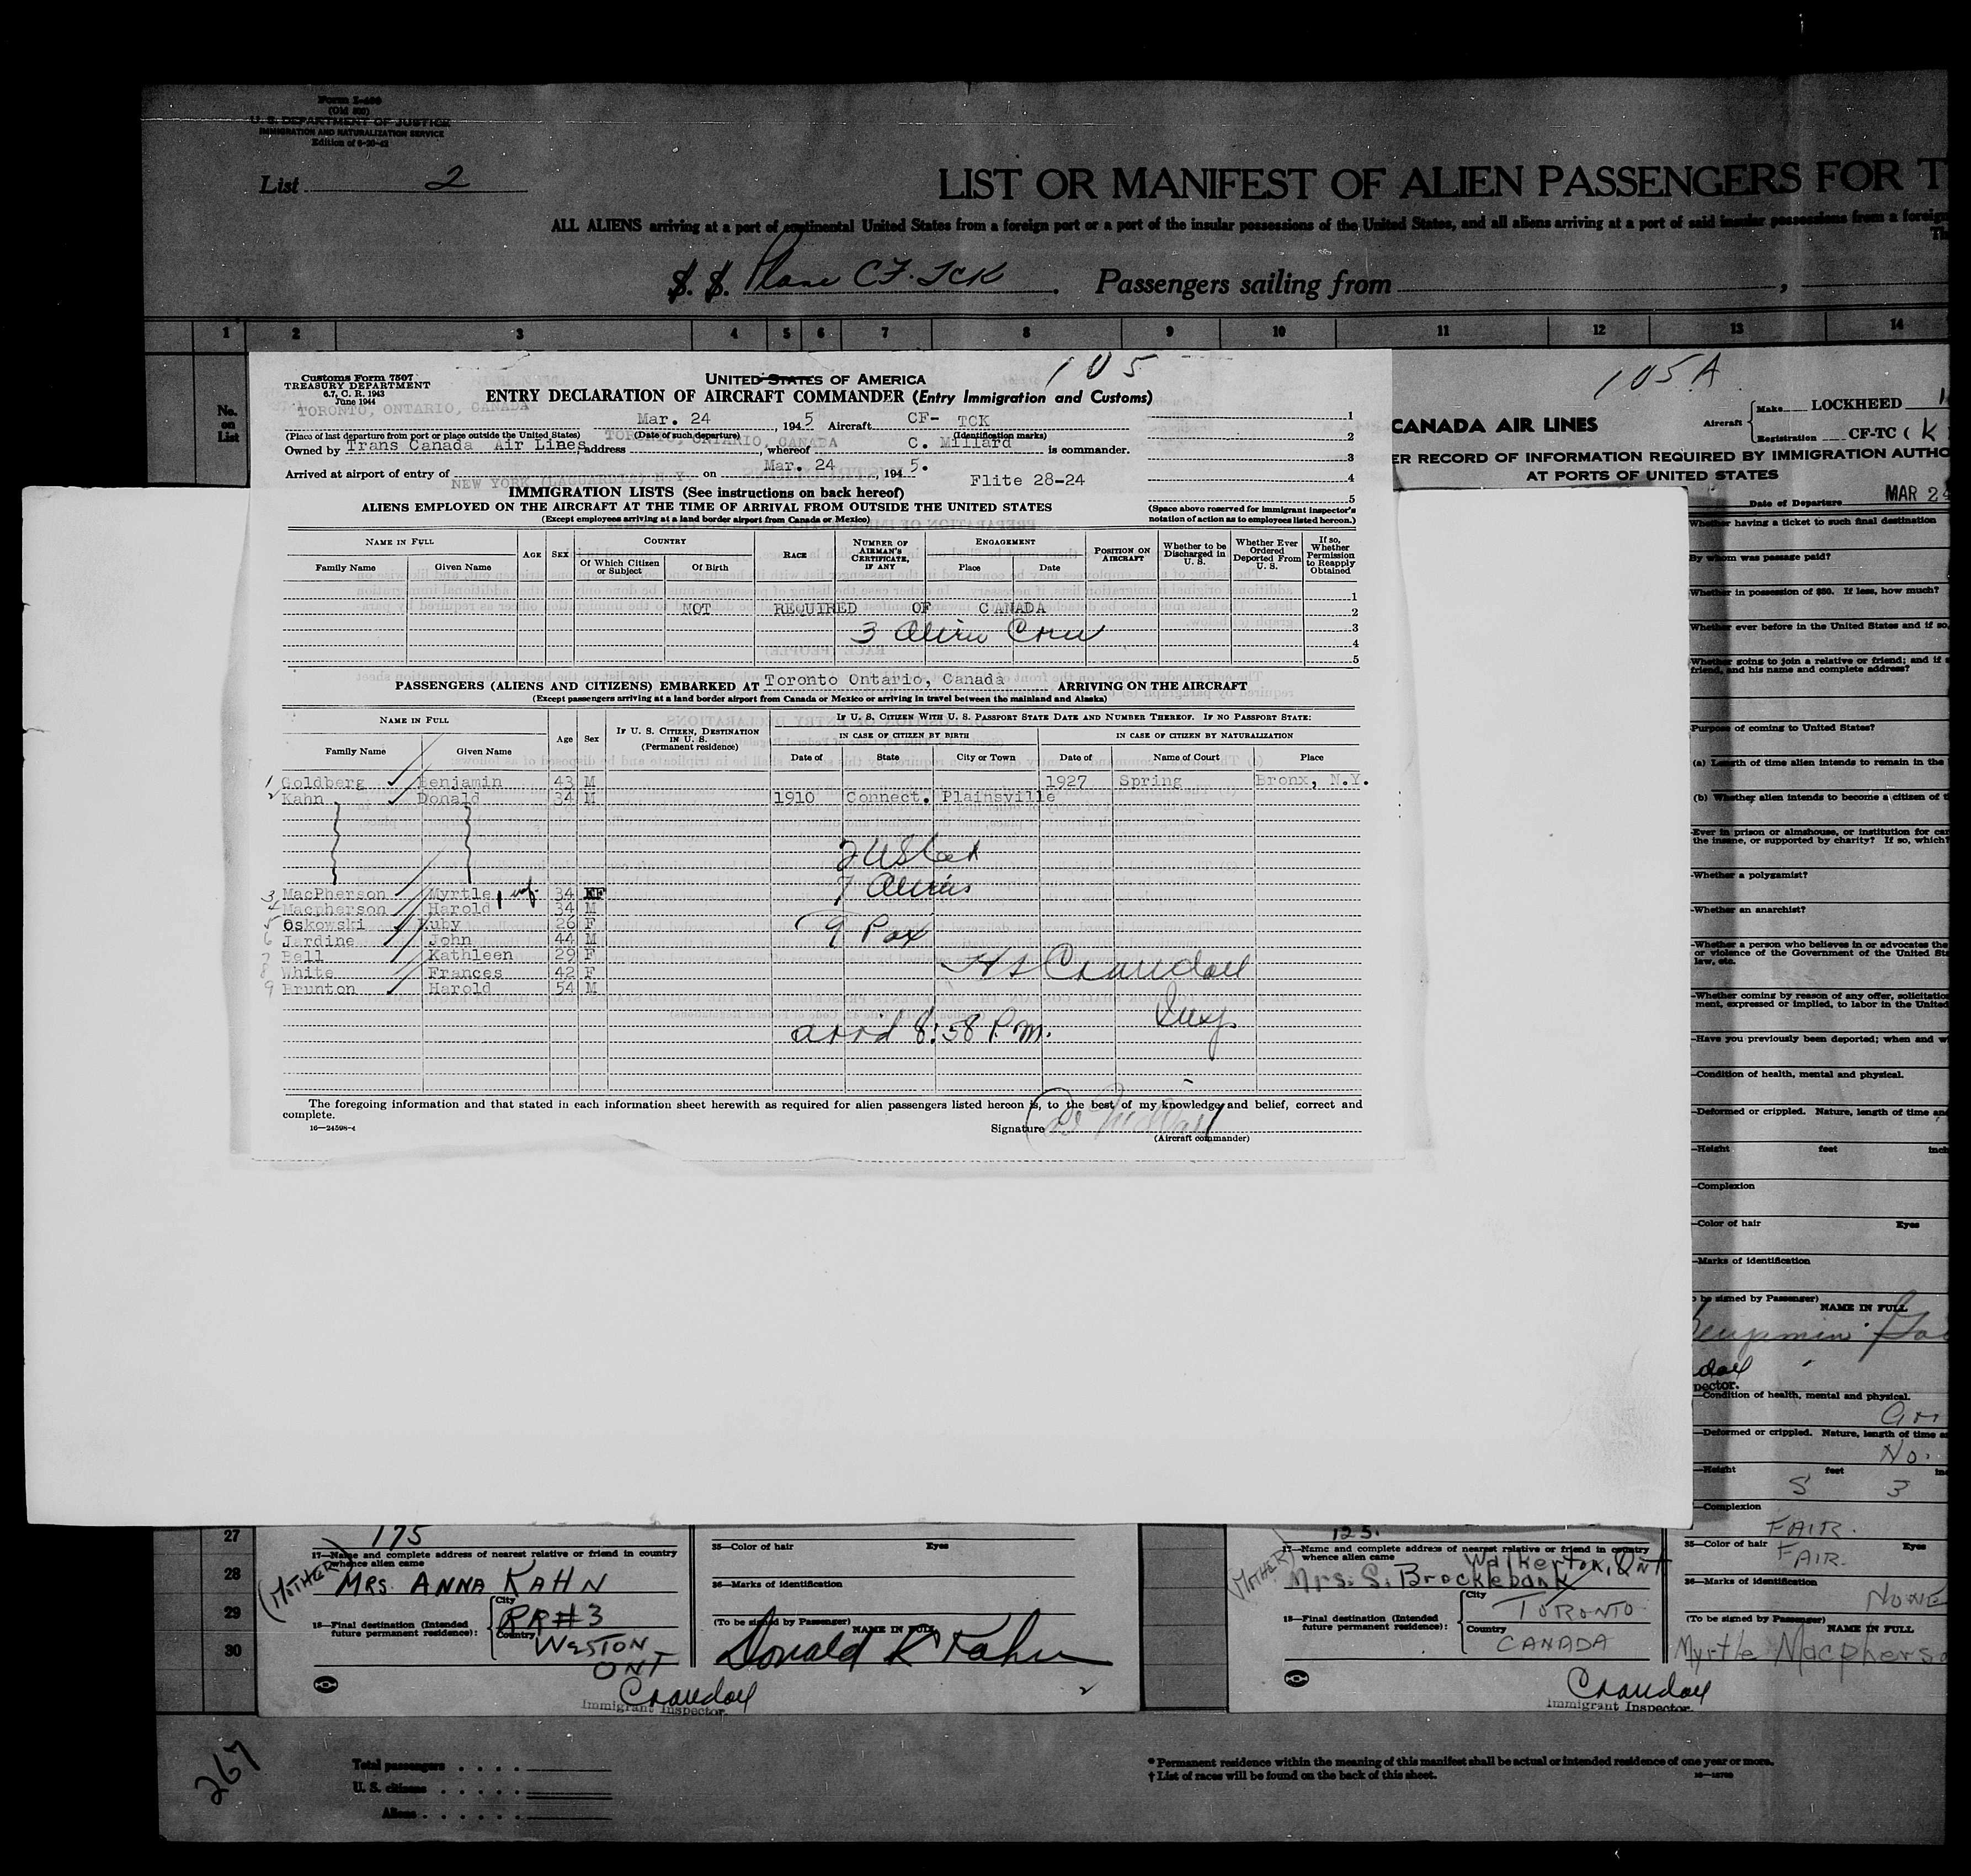 Form I-466
(Old 500)
U. S. DEPARTMENT OF JUSTICE
IMMIGRATION AND NATURALIZATION SERVICE
List 2
LIST OR MANIFEST OF ALIEN PASSENGERS FOR T
ALL ALIENS arriving at a port of continental United States from a foreign port or a port of the insular possessions of the United States, and all aliens arriving at a port of said insular possessions from a foreign
Th
S. S. Plane CF-TCK . Passengers sailing from ,
1 2 3 4 5 6 7 8 9 10 11 12 13 14
No. on List
105
Customs Form 7507
TREASURY DEPARTMENT
6.7, C. R. 1943
June 1944
UNITED STATES OF AMERICA
ENTRY DECLARATION OF AIRCRAFT COMMANDER (Entry Immigration and Customs)
TORONTO, ONTARIO, CANADA Mar. 24 , 1945 Aircraft CF- TCK 1
(Place of last departure from port or place outside the United States) (Date of such departure) (Identification marks)
2
Owned by Trans Canada Air Lines, address TORONTO, ONTARIO, CANADA, whereof C. Millard is commander.
3
Arrived at airport of entry of NEW YORK (LAGUARDIA) N.Y. on Mar. 24 , 1945. Flite 28-24
4
5
IMMIGRATION LISTS (See instructions on back hereof)
ALIENS EMPLOYED ON THE AIRCRAFT AT THE TIME OF ARRIVAL FROM OUTSIDE THE UNITED STATES
(Except employees arriving at a land border airport from Canada or Mexico)
(Space above reserved for immigrant inspector's notation of action as to employees listed hereon.)
NAME IN FULL
Family Name Given Name
AGE SEX
COUNTRY
Of Which Citizen or Subject Of Birth
RACE
NUMBER OF AIRMAN'S CERTIFICATE, IF ANY
ENGAGEMENT
Place Date
POSITION ON AIRCRAFT
Whether to be Discharged in U. S.
Whether Ever Ordered Deported From U. S.
If so, Whether Permission to Reapply Obtained
1
NOT REQUIRED OF CANADA 2
3 Alien Crew 3
4
5
PASSENGERS (ALIENS AND CITIZENS) EMBARKED AT Toronto Ontario, Canada ARRIVING ON THE AIRCRAFT
(Except passengers arriving at a land border airport from Canada or Mexico or arriving in travel between the mainland and Alaska)
NAME IN FULL
Family Name Given Name
Age Sex
IF U. S. CITIZEN, DESTINATION IN U. S. (Permanent residence)
IF U. S. CITIZEN WITH U. S. PASSPORT STATE DATE AND NUMBER THEREOF. IF NO PASSPORT STATE:
IN CASE OF CITIZEN BY BIRTH IN CASE OF CITIZEN BY NATURALIZATION
Date of State City or Town Date of Name of Court Place
1 Goldberg Benjamin 43 M 1927 Spring Bronx, N.Y.
2 Kahn Donald 34 M 1910 Connect. Plainsville
7 Aliens
3 MacPherson Myrtle 34 F
4 Macpherson Harold 34 M
5 Oskowski Ruby 26 F
9 Pax
6 Jardine John 44 M
7 Bell Kathleen 29 F
8 White Frances 42 F
9 Brunton Harold 54 M
Crandall
Insp.
arrd 8:58 P.M.
The foregoing information and that stated in each information sheet herewith as required for alien passengers listed hereon is, to the best of my knowledge and belief, correct and complete.
16—24598-4
Signature
(Aircraft commander)
105A
CANADA AIR LINES
Aircraft
Make LOCKHEED
Registration CF-TC ( K
ER RECORD OF INFORMATION REQUIRED BY IMMIGRATION AUTHO
AT PORTS OF UNITED STATES
Date of Departure MAR 24
Whether having a ticket to such final destination
By whom was passage paid?
Whether in possession of $50. If less, how much?
Whether ever before in the United States and if so,
Whether going to join a relative or friend; and if s
friend, and his name and complete address?
Purpose of coming to United States?
(a) Length of time alien intends to remain in the
(b) Whether alien intends to become a citizen of t
Ever in prison or almshouse, or institution for car
the insane, or supported by charity? If so, which?
Whether a polygamist?
Whether an anarchist?
Whether a person who believes in or advocates the
or violence of the Government of the United Sta
law, etc.
Whether coming by reason of any offer, solicitatio
ment, expressed or implied, to labor in the United
Have you previously been deported; when and w
Condition of health, mental and physical.
Deformed or crippled. Nature, length of time and
Height feet inch
Complexion
Color of hair Eyes
Marks of identification
be signed by Passenger)
NAME IN FULL
Benjamin Go
dall
pector.
Condition of health, mental and physical.
Deformed or crippled. Nature, length of time a
No.
Height feet in
5 3
Complexion
FAIR.
35—Color of hair Eyes
FAIR.
36—Marks of identification
NONE
(To be signed by Passenger)
NAME IN FULL
Myrtle Macpherso
27
28
29
30
175
17—Name and complete address of nearest relative or friend in country whence alien came
(MOTHER) MRS. ANNA KAHN
18—Final destination (Intended future permanent residence):
City RR#3
Country WESTON
ONT
Crandall
Immigrant Inspector.
35—Color of hair Eyes
36—Marks of identification
(To be signed by Passenger)
NAME IN FULL
Donald K Kahn
2
125.
17—Name and complete address of nearest relative or friend in country whence alien came
Walkerton, Ont
(MOTHER) Mrs. S. Brockebank
18—Final destination (Intended future permanent residence):
City TORONTO
Country CANADA
Crandall
Immigrant Inspector.
267
Total passengers
U. S. citizens
Aliens
* Permanent residence within the meaning of this manifest shall be actual or intended residence of one year or more.
† List of races will be found on the back of this sheet.